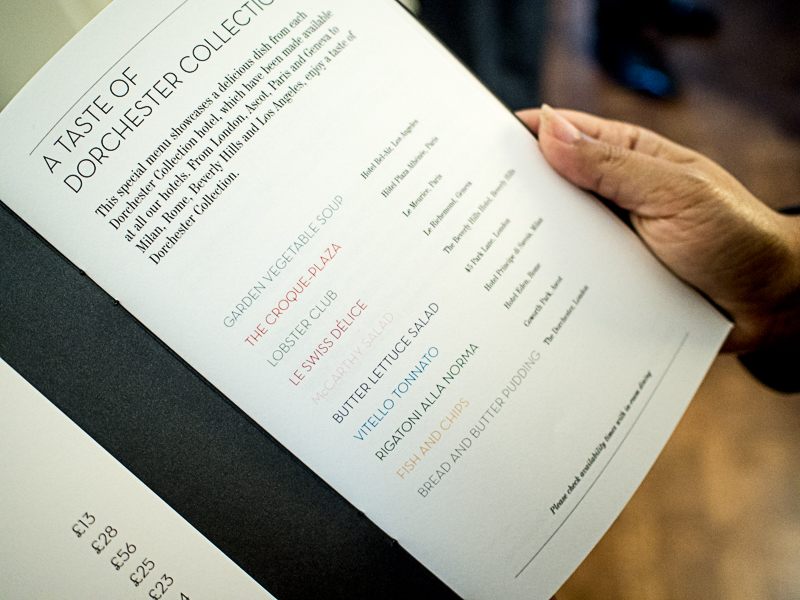 A TASTE OF
DORCHESTER COLLECTIO
This special menu showcases a delicious dish from each
Dorchester Collection hotel, which have been made available
at all our hotels. From London, Ascot, Paris and Geneva to
Milan, Rome, Beverly Hills and Los Angeles, enjoy a taste of
Dorchester Collection.
GARDEN VEGETABLE SOUP Hotel Bel-Air, Los Angeles
THE CROQUE-PLAZA Hôtel Plaza Athénée, Paris
LOBSTER CLUB Le Meurice, Paris
LE SWISS DÉLICE Le Richemond, Geneva
McCARTHY SALAD The Beverly Hills Hotel, Beverly Hills
BUTTER LETTUCE SALAD 45 Park Lane, London
VITELLO TONNATO Hotel Principe di Savoia, Milan
RIGATONI ALLA NORMA Hotel Eden, Rome
FISH AND CHIPS Coworth Park, Ascot
BREAD AND BUTTER PUDDING The Dorchester, London
Please check availability times with in-room dining
£13
£28
£56
£25
£23